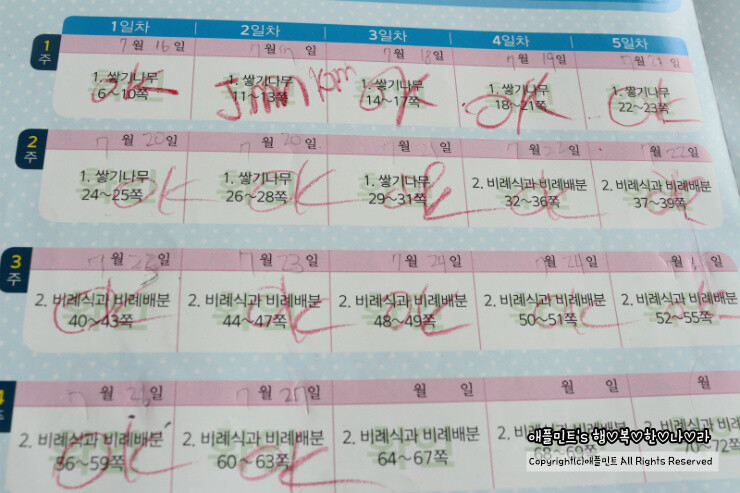 1일차 2일차 3일차 4일차 5일차
1주
7월 16일 7월 17일 7월 18일 7월 19일 7월 일
1. 쌓기나무 1. 쌓기나무 1. 쌓기나무 1. 쌓기나무 1. 쌓기나무
6~10쪽 11~13쪽 14~17쪽 18~21쪽 22~23쪽
OK OK OK OK
2주
7월 20일 7월 20일 월 일 7월 일 7월 22일
1. 쌓기나무 1. 쌓기나무 1. 쌓기나무 2. 비례식과 비례배분 2. 비례식과 비례배분
24~25쪽 26~28쪽 29~31쪽 32~36쪽 37~39쪽
OK OK OK OK OK
3주
7월 일 7월 23일 7월 24일 7월 24일 월 일
2. 비례식과 비례배분 2. 비례식과 비례배분 2. 비례식과 비례배분 2. 비례식과 비례배분 2. 비례식과 비례배분
40~43쪽 44~47쪽 48~49쪽 50~51쪽 52~55쪽
OK OK OK OK OK
4주
7월 일 7월 27일 월 일 월 일 월 일
2. 비례식과 비례배분 2. 비례식과 비례배분 2. 비례식과 비례배분 2. 비례식과 비례배분
56~59쪽 60~63쪽 64~67쪽 68~69쪽 70~72쪽
OK OK
애플민트's 행♡복♡한♡나♡라
Copyright(c)애플민트 All Rights Reserved